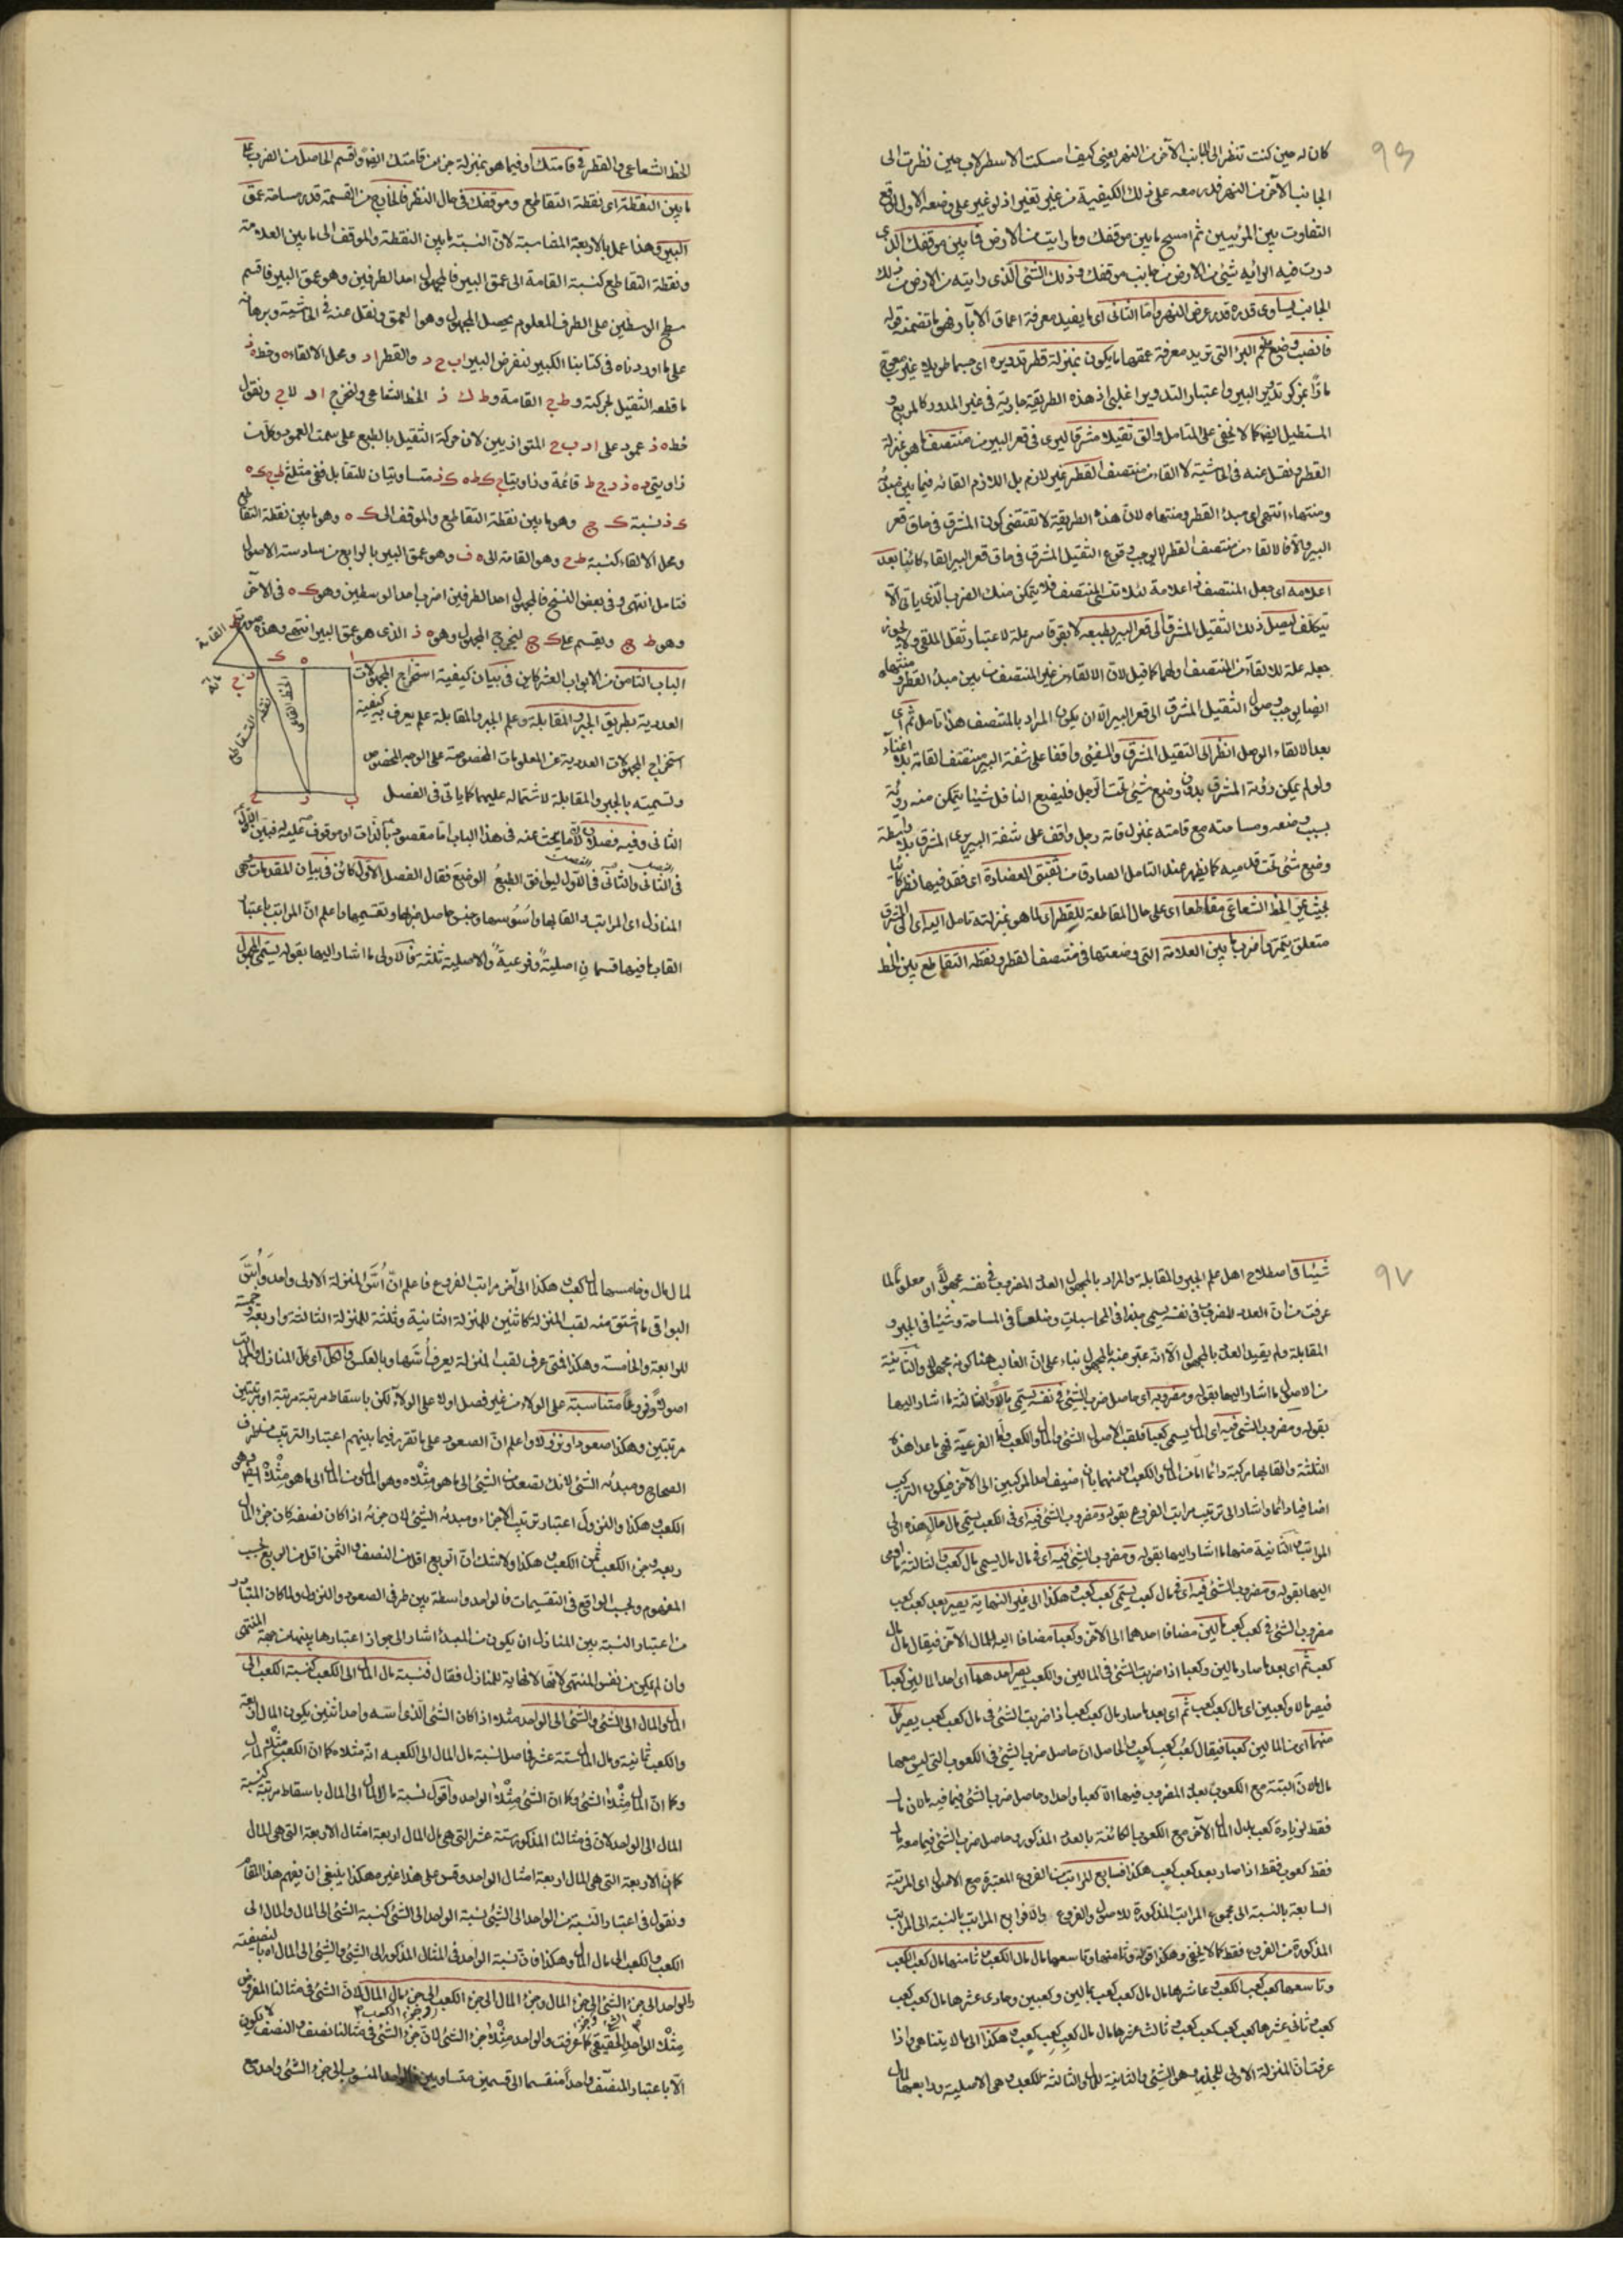 ٩٦
كان له حين كنت تنظر الى الجانب الآخر من النهر يعنى كيف امسكت الاسطرلاب حين نظرت الى
الجانب الآخر من النهر فدر معه على ذلك الكيفية من غير تغير اذ لو غير على وضعه الاول لوقع
التفاوت بين المرئيين ثم امسح ما بين موقفك وما رايت من الارض فما بين موقفك الذى
درت فيه الرائيه شئ من الارض من جانب موقفك وذلك الشئ الذى رايته من الارض من ذلك
الجانب يساوى قدره قدر عرض النهر واما الثانى اى ما يفيد معرفة اعماق الآبار فهو ما تضمنه قوله
فانصب وضع على فم البئر التى تريد معرفة عمقها ما يكون بمنزلة قطر تدويره اى جسما طويلا غير معوج
مارا بمركز تدوير البير واعتبار التدوير اغلبى اذ هذه الطريقة جارية فى غير المدور كالمربع و
المستطيل ايضا كما لا يخفى على المتامل والق ثقيلا مشرقا ليرى فى قعر البير من منتصف ما هو بمنزلة
القطر ونقل عنه فى الحاشية لا القاء من منتصف القطر غير لازم بل اللازم القائه فيما بين مبدئه
ومنتهاه انتهى اى مبدء القطر ومنتهاه لان هذه الطريقة لا تقتضى كون المشرق فى حاق قعر
البير والا فالالقاء من منتصف القطر لا يوجب وقوع الثقيل المشرق فى حاق قعر البير القاء كائنا بعد
اعلامه اى جعل المنتصف ذا علامة لئلا تنسى المنتصف فلا يتمكن منك الضرب الذى ياتى الا
بتكلف ليصل ذلك الثقيل المشرق الى قعر البير بطبعه لا بقوة
جعله علة للالقاء من المنتصف اولهما كما قيل لان الالقاء من غير المنتصف من بين مبدء القطر ومنتهاه
ايضا يوجب وصول الثقيل المشرق الى قعر البير الا ان يكون المراد بالمنتصف هذا تامل ثم اى
بعد الالقاء الوصل انظر الى الثقيل المشرق والمضئ واقفا على شفة البير
ولو لم يمكن رؤية المشرق بدون وضع شئ تحت الرجل فليضع الناظر شيئا يتمكن منه رؤيته
بسبب وضعه ومساحته مع قامته بمنزلة قامة رجل واقف على شفة البير يرى المشرق بلا واسطة
وضع شئ تحت قدميه كما يظهر عند التامل الصادق من ثقبتى العضادة اى فقد فيهما نظرا كائنا
بحيث يمر الخط الشعاعى مقاطعا اى على حال المقاطعة للقطر اى لما هو بمنزلته تامل اليه اى الى المشرق
متعلق بيمر واضرب ما بين العلامة التى وضعتها فى منتصف القطر ونقطة التقاطع بين الخط
الخط الشعاعى والقطر فى قامتك او فيما هو بمنزلة جزء من قامتك ايضا واقسم الحاصل من الضرب على
ما بين النقطة اى نقطة التقاطع وموقفك فى حال النظر فالخارج من القسمة قدر مسامة عمق
البير وهذا عمل بالاربعة المتناسبة لان النسبة ما بين النقطة والموقف الى ما بين العلامة
ونقطة التقاطع كنسبة القامة الى عمق البير فالمجهول احد الطرفين وهو عمق البير فاقسم
مسطح الوسطين على الطرف المعلوم يحصل المجهول وهو العمق ونقل عنه فى الحاشية وبرهانه
على ما اوردناه فى كتابنا الكبير لنفرض البير اب ج د والقطر اد ومحل الالقاء ه وخط ه ز
ما قطعه الثقيل بحركته و ط ج القامة و ط ك ذ الخط الشعاعى ولنخرج
خط ه ذ عمود على اد ب ج المتوازيين لان حركة الثقيل بالطبع على سمت العمود وكل من
زاويتى
ك ذ نسبة ك ج وهو ما بين نقطة التقاطع والموقف الى ك ه وهو ما بين نقطة التقاطع
ومحل الالقاء كنسبة ط ج وهو القامة الى ه ف وهو عمق البير بالرابع من سادسة الاصول
فتامل انتهى وفى بعض النسخ فالمجهول احد الطرفين اضرب احد الوسطين وهو ك ه فى الآخر
وهو ط ج ويقسم على ك ج ليخرج المجهول وهو ه ذ الذى هو عمق البير انتهى وهذه صورته
الباب الثامن من الابواب العشرة كاين فى بيان كيفية استخراج المجهولات
العددية بطريق الجبر والمقابلة وعلم الجبر والمقابلة علم يعرف به كيفية
استخراج المجهولات العددية عن المعلومات المخصوصة على الوجه المخصوص
وتسميته بالجبر والمقابلة لاشتماله عليهما كما ياتى فى الفصل
الثانى وفيه فصلان لان ما يبحث عنه فى هذا الباب اما مقصود بالذات او موقوف عليه فبين الاول
فى الثانى والثانى فى الاول ليوافق الطبع الوضع فقال الفصل الاول كائن فى بيان المقدمات وهى
المنازل اى المراتب والقابها واسوسها وجنس حاصل ضربها وتقسيمها واعلم ان المراتب باعتبار
القابها فيها قسمان اصلية وفرعية والاصلية ثلثة فالاولى ما اشار اليها بقوله يسمى المجهول
القامة
الخط القائم
نقطة التقاطع
٩٧
شيئا فى اصطلاح اهل علم الجبر والمقابلة والمراد بالمجهول العدد المضروب فى نفسه مجهولا او معلوما لما
عرفت من ان العدد المضروب فى نفسه يسمى جذرا فى المحاسبات وضلعا فى المساحة وشيئا فى الجبر و
المقابلة ولم يقيد العدد بالمجهول الا انه عبر عنه بالمجهول بناء على ان الغالب هنا كونه مجهولا والثانية
من الاصول ما اشار اليها بقوله ومضروبه اى حاصل ضرب الشئ فى نفسه يسمى مالا والثالثة ما اشار اليها
بقوله ومضروب الشئ فيه اى المال يسمى كعبا فلقب الاصول الشئ والمال والكعب واما الفرعية فهى ما عدا هذه
الثلثة والقابها مركبة دائما اما من المال والكعب او منهما بان اضيف احد المركبين الى الآخر فيكون التركيب
اضافيا دائما واشار الى ترتيب مراتب الفروع بقوله ومضروب الشئ فيه اى فى الكعب يسمى مال مال هذه اولى
المراتب والثانية منها ما اشار اليها بقوله ومضروب الشئ فيه اى فى مال مال يسمى مال كعب والثالثة ما اومى
اليها بقوله ومضروب الشئ فيه اى فى مال كعب يسمى كعب كعب وهكذا الى غير النهاية يصير بعد كعب كعب
مضروب الشئ فى كعب كعب مالين مضافا احدهما الى الآخر وكعبا مضافا اليه المال الآخر فيقال مال مال
كعب ثم اى بعد ما صار مالين وكعبا اذا ضربت الشئ فى المالين والكعب يصير احدهما اى احد المالين كعبا
فيصير مالا وكعبين اى مال كعب كعب ثم اى بعد ما صار مال كعب كعب اذا ضربت الشئ فى مال كعب كعب يصير كل
منهما اى من المالين كعبا فيقال كعب كعب كعب والحاصل ان حاصل ضرب الشئ فى الكعوب التى ليس معها
مال مالان البتة مع الكعوب بعدد المضروب فيها الا كعبا واحدا وحاصل ضرب الشئ فيما فيه مالان مال
فقط لزيادة كعب بدل المال الآخر مع الكعوب الكائنة بالعدد المذكور وحاصل ضرب الشئ فيما معه مال
فقط كعوب فقط اذا صار بعد كعب كعب هكذا فسابع المراتب من الفروع المعتبرة مع الاصول اى المرتبة
السابعة بالنسبة الى مجموع المراتب المذكورة للاصول والفروع والا فرابع المراتب بالنسبة الى المراتب
المذكورة من الفروع فقط كما لا يخفى وهكذا قوله وثامنها وتاسعها مال مال الكعب وثامنها مال كعب الكعب
وتاسعها كعب كعب الكعب وعاشرها مال مال كعب كعب بمالين وكعبين وحادى عشرها مال كعب كعب
كعب وثانى عشرها كعب كعب كعب كعب وثالث عشرها مال مال كعب كعب كعب وهكذا الى ما لا يتناهى واذا
عرفت ان المنزلة الاولى للجذر وهو الشئ والثانية للمال والثالثة للكعب وهى الاصلية ورابعها لمال
لمال مال وخامسها لمال كعب وهكذا الى آخر مراتب الفروع فاعلم ان اس المنزلة الاولى واحد واس
البواقى ما اشتق منه لقب المنزلة كاثنين للمنزلة الثانية وثلثة للمنزلة الثالثة واربعة وخمسة
للرابعة والخامسة وهكذا فمتى عرف لقب المنزلة يعرف اسها وبالعكس والكل اى كل المنازل والمراتب
اصولا وفروعا متناسبة على الولاء من غير فصل اولا على الولاء لكن باسقاط مرتبة مرتبة او مرتبتين
مرتبتين وهكذا صعودا ونزولا واعلم ان الصعود على ما تقرر فيما بينهم اعتبار الترتيب من طرف
الصحاح ومبدئه الشئ لانك تصعد من الشئ الى ما هو مثله وهو المال ومن المال الى ما هو مثله ايضا وهو
الكعب وهكذا والنزول اعتبار ترتيب الاجزاء ومبدئه الشئ لان جزئه اذا كان نصفه كان جزء المال
ربعه وجزء الكعب ثمن الكعب وهكذا ولا شك ان الربع اقل من النصف والثمن اقل من الربع بحسب
المفهوم وبحسب الواقع فى التقسيمات فالواحد واسطة بين طرفى الصعود والنزول ولما كان المتبادر
من اعتبار النسبة بين المنازل ان يكون من المبدء اشار الى جواز اعتبارها بينها من جهة المنتهى
وان لم يمكن من نفس المنتهى لانها لا نهاية للمنازل فقال فنسبة مال المال الى الكعب كنسبة الكعب الى
المال والمال الى الشئ والشئ الى الواحد مثلا اذا كان الشئ الذى اسه واحد اثنين يكون المال اربعة
والكعب ثمانية ومال المال ستة عشر فحاصل نسبة مال المال الى الكعب انه مثلاه كما ان الكعب مثلا المال
وكما ان المال مثلا الشئ وكما ان الشئ مثلا الواحد واقول نسبة مال المال الى المال باسقاط مرتبة كنسبة
المال الى الواحد لان فى مثالنا المذكور ستة عشر التى هى مال المال اربعة امثال الاربعة التى هى المال
كما ان الاربعة التى هى المال اربعة امثال الواحد وقس على هذا غيره هكذا ينبغى ان يفهم هذا المقام
ونقول فى اعتبار النسبة من الواحد الى الشئ نسبة الواحد الى الشئ كنسبة الشئ الى المال والمال الى
الكعب والكعب الى مال المال وهكذا فان نسبة الواحد فى المثال المذكور الى الشئ والشئ الى المال
والواحد الى جزء الشئ الى جزء المال وجزء المال الى جزء الكعب الى جزء مال المال لان الشئ فى مثالنا المفروض
مثلا الواحد الحقيقى كما عرفت والواحد مثلا جزء الشئ لان جزء الشئ فى مثالنا نصف والنصف لا يكون
الا باعتبار المنصف واحدا منقسما الى قسمين متساويين فالواحد المنسوب الى جزء الشئ واحد مع